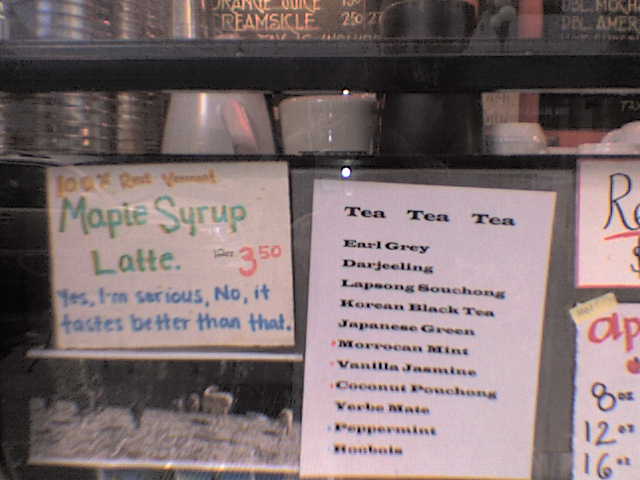 ORANGE JUICE
CREAMSICLE 250
DBL MOCHA
DBL AMER
100% Real Vermont
Maple Syrup
Latte.
3 50
Yes, I'm serious, No, it
tastes better than that.
Tea Tea Tea
Earl Grey
Darjeeling
Lapsong Souchong
Korean Black Tea
Japanese Green
Morrocan Mint
Vanilla Jasmine
Coconut Pouchong
Yerbe Mate
Peppermint
Roobois
Re
$
ap
8 oz
12 oz
16 oz